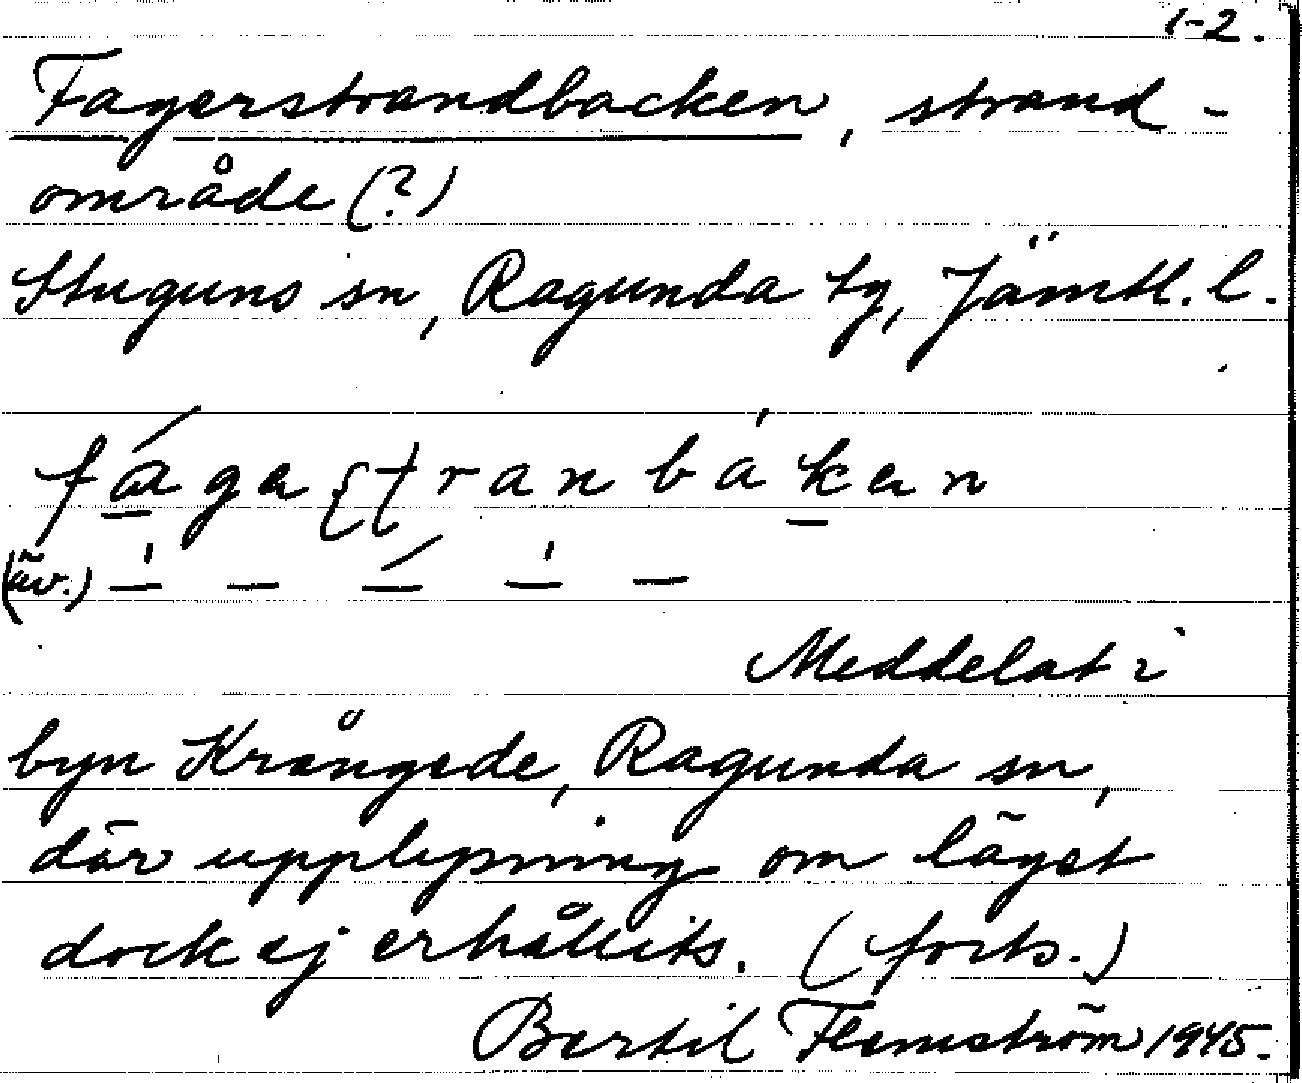 1-2.
Fagerstrandbacken, strand-
område (?)
Stuguns sn, Ragunda tg, Jämtl. l.
(äv.)
Meddelat i
byn Krångede, Ragunda sn,
där upplysning om läget
dock ej erhållits. (forts.)
Bertil Flemström 1945.